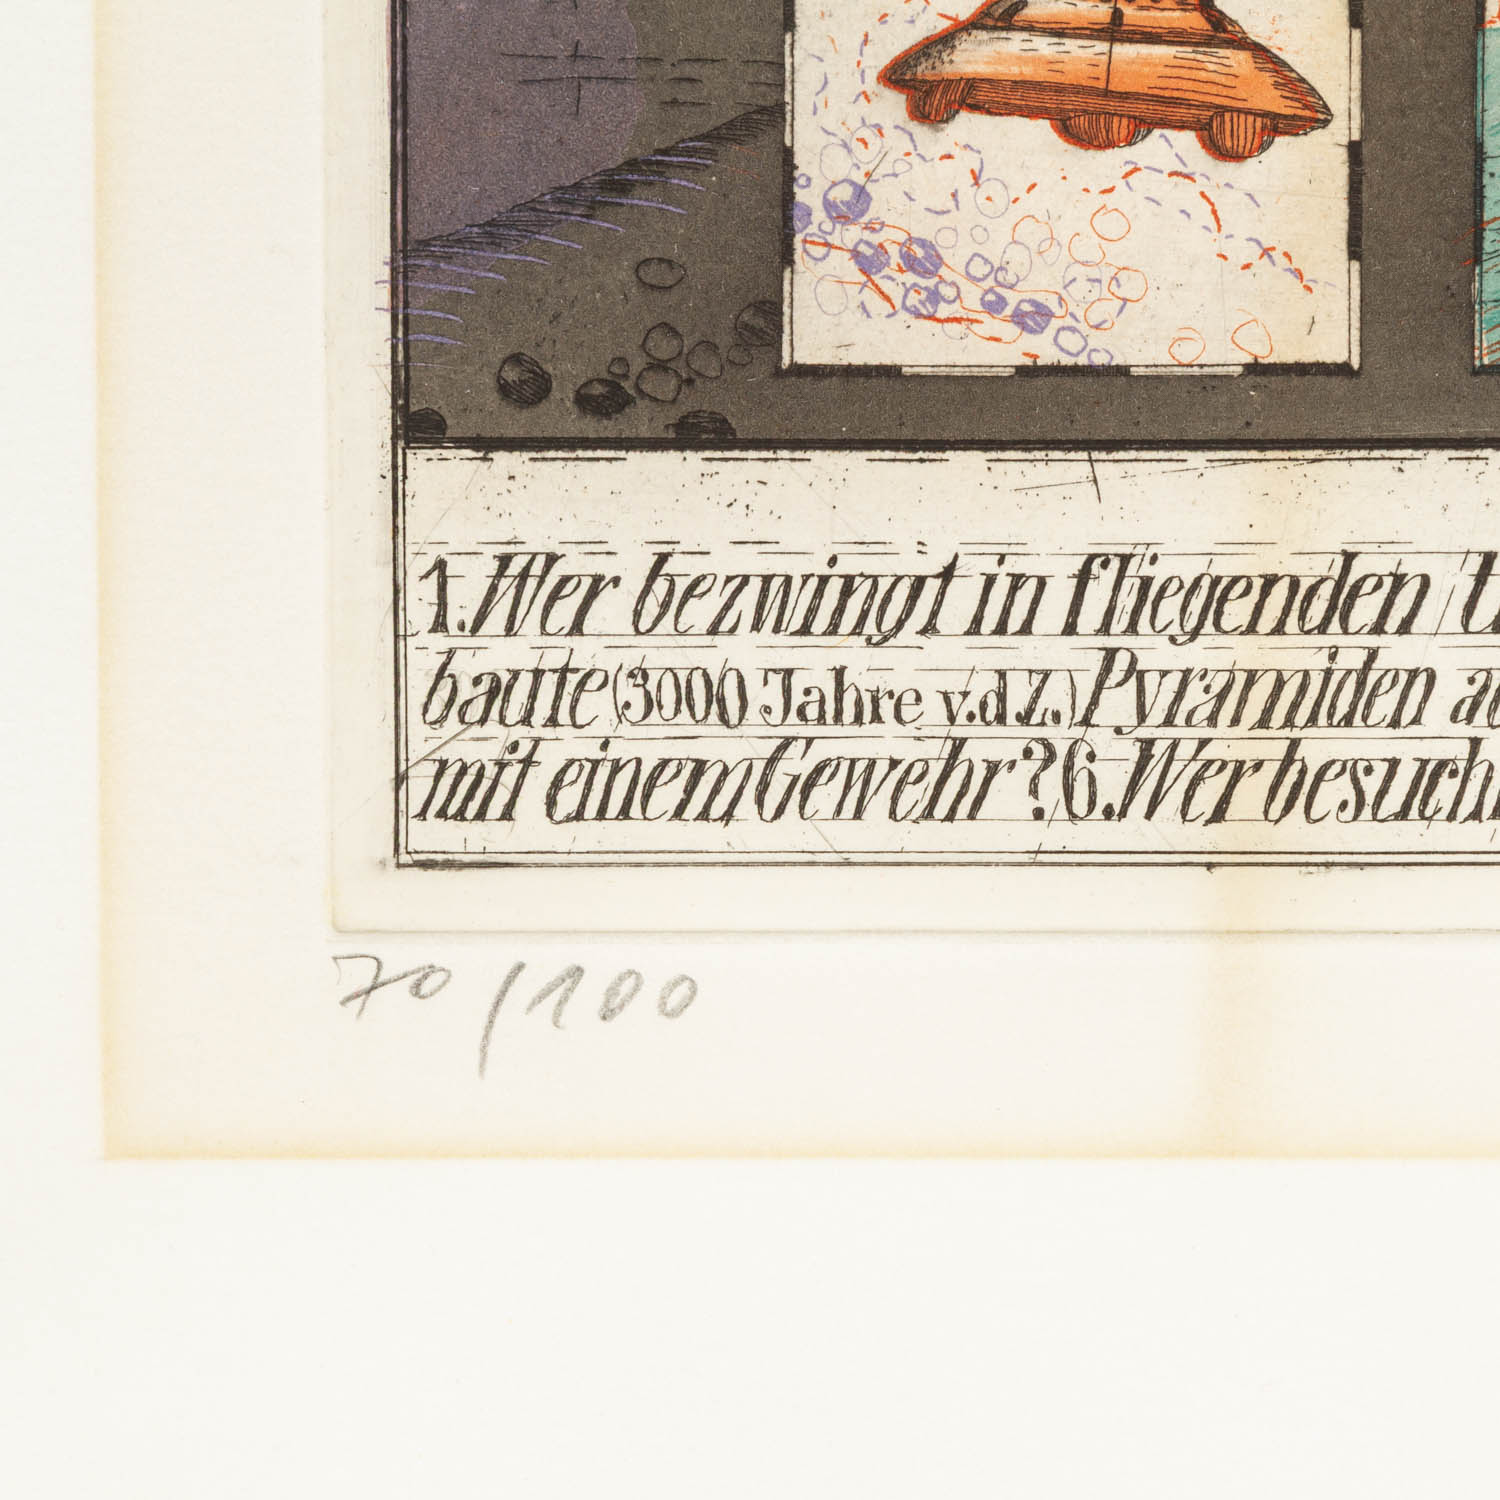 1. Wer bezwingt in fliegenden
baute (3000 Jahre v.d.Z.) Pyramiden
mit einem Gewehr? 6. Wer
70/100